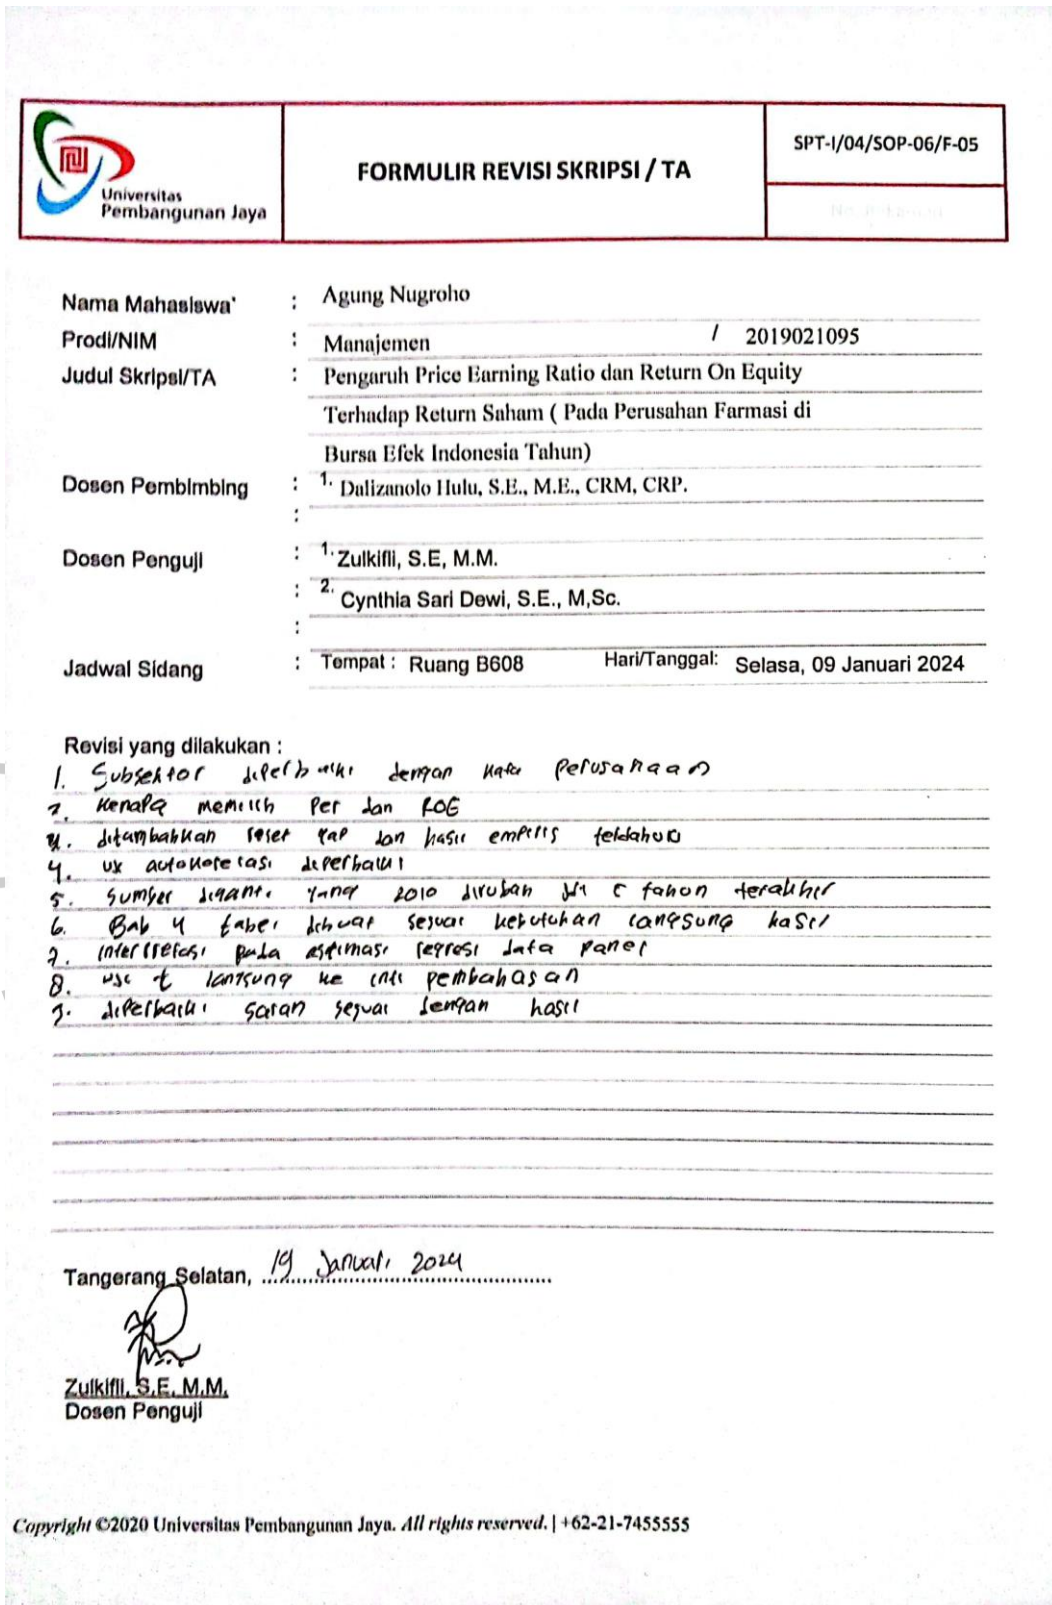 Universitas
Pembangunan Jaya
FORMULIR REVISI SKRIPSI / TA
SPT-I/04/SOP-06/F-05
Nama Mahasiswa : Agung Nugroho
Prodi/NIM : Manajemen / 2019021095
Judul Skripsi/TA : Pengaruh Price Earning Ratio dan Return On Equity
Terhadap Return Saham ( Pada Perusahan Farmasi di
Bursa Efek Indonesia Tahun)
Dosen Pembimbing : 1. Dalizanolo Hulu, S.E., M.E., CRM, CRP.
:
Dosen Penguji : 1. Zulkifli, S.E, M.M.
: 2. Cynthia Sari Dewi, S.E., M,Sc.
:
Jadwal Sidang : Tempat : Ruang B608 Hari/Tanggal: Selasa, 09 Januari 2024
Revisi yang dilakukan :
1. Subsektor diperbaiki dengan kata perusahaan
2. Kenapa memilih Per dan ROE
ditambahkan gap dan hasil empiris
4. autokorelasi diperbaiki
5. Sumber diganti yang 2010 dirubah 5 tahun terakhir
6. Bab 4 tabel dibuat sesuai kebutuhan langsung hasil
7. pada estimasi regresi data panel
8. t langsung ke inti pembahasan
9. diperbaiki saran sesuai dengan hasil
Tangerang Selatan, 19 Januari 2024
Zulkifli, S.E, M.M.
Dosen Penguji
Copyright ©2020 Universitas Pembangunan Jaya. All rights reserved. | +62-21-7455555